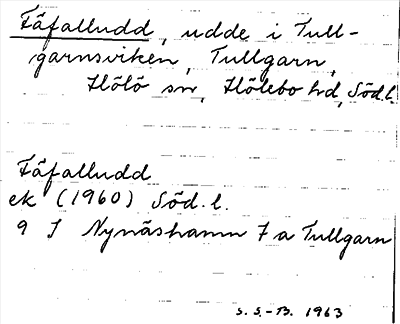 Fäfalludd, udde i Tull-
garnsviken, Tullgarn,
Hölö sn, Hölebo hd, Söd.l.
Fäfalludd
ek (1960) Söd.l.
9 I Nynäshamn 7 a Tullgarn
S.S.-B. 1963